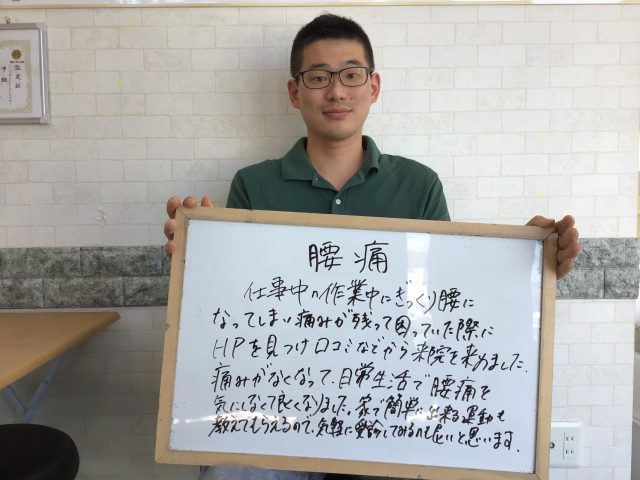 認定証
腰痛
仕事中の作業中にぎっくり腰に
なってしまい痛みが残って困っていた際に
HPを見つけ口コミなどから来院を決めました。
痛みがなくなって、日常生活で腰痛を
気にしなくて良くなりました。家で簡単に出来る運動も
教えてもらえるので、気軽に受診してみるのも良いと思います。